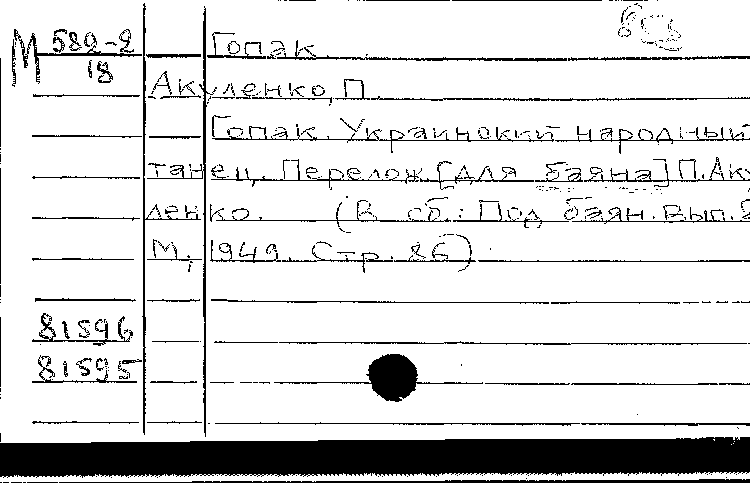 М 582-2
18
Гопак.
Акуленко, П.
Гопак. Украинский народный
танец. Перелож. [для баяна] П. Аку
ленко. (В сб.: Под баян. Вып.
М., 1949. Стр. 86)
81596
81595